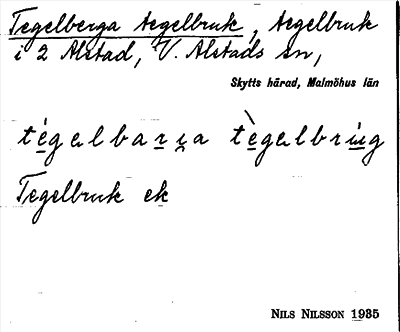 Tegelberga tegelbruk, tegelbruk
i 2 Alstad, V. Alstads sn,
Skytts härad, Malmöhus län
té̱galbaṟi̯a tè̱galbrúg
Tegelbruk ek
NILS NILSSON 1935